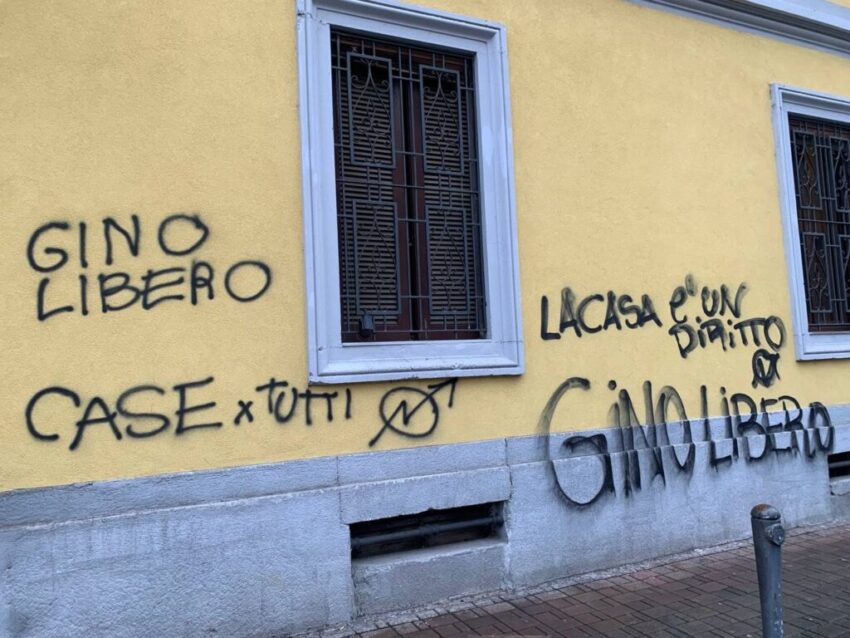 GINO
LIBERO
CASE x TUTTI
LA CASA è UN
DIRITTO
GINO LIBERO